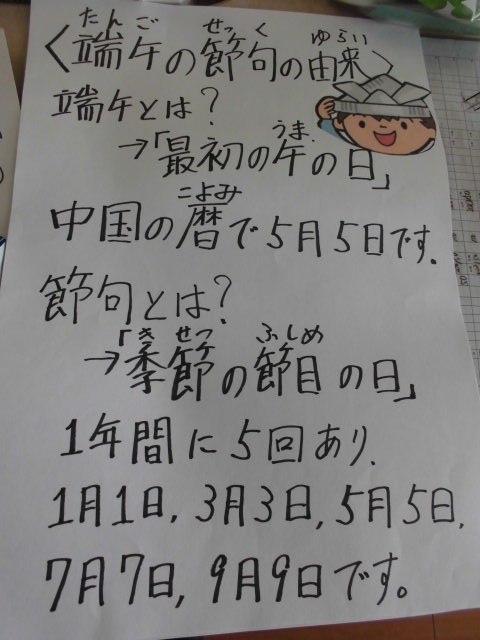 たんご せっく ゆらい
〈端午の節句の由来〉
端午とは?
うま
→「最初の午の日」
こよみ
中国の暦で5月5日です.
節句とは?
きせつ ふしめ
→「季節の節目の日」
1年間に5回あり、
1月1日, 3月3日, 5月5日,
7月7日, 9月9日です。